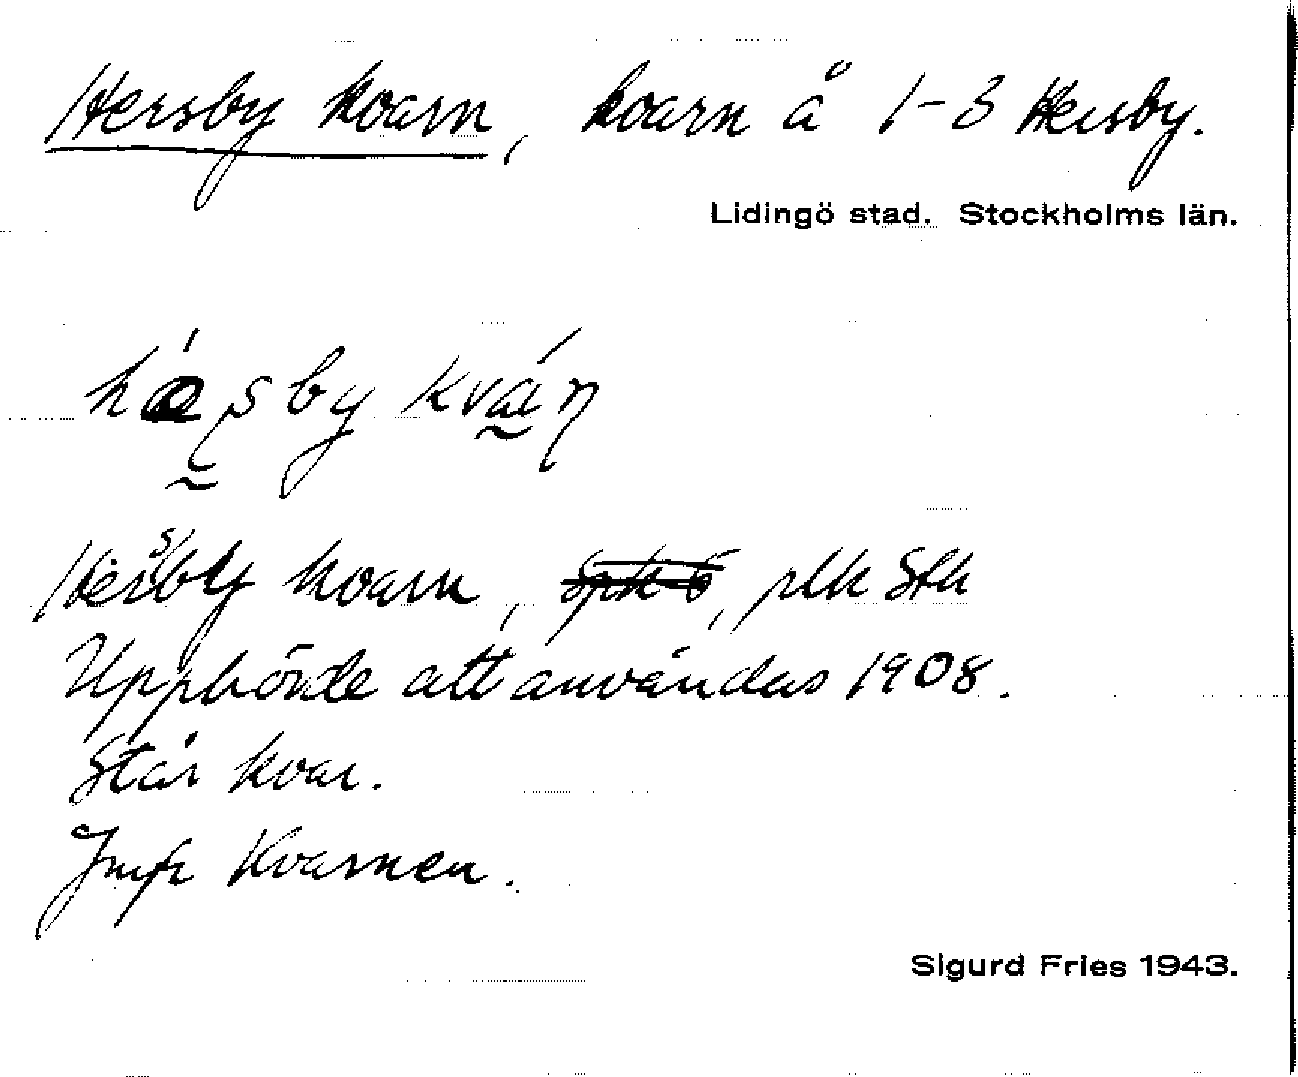 Hersby kvarn, kvarn å 1-3 Hersby.
Lidingö stad. Stockholms län.
by kván
Hersby kvarn, plk Stk
Upphörde att användas 1908.
Står kvar.
Jmfr Kvarnen.
Sigurd Fries 1943.